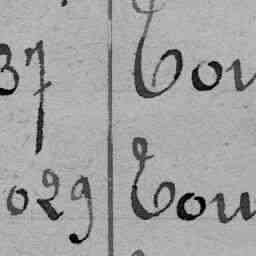 37 Tou
029 Tou